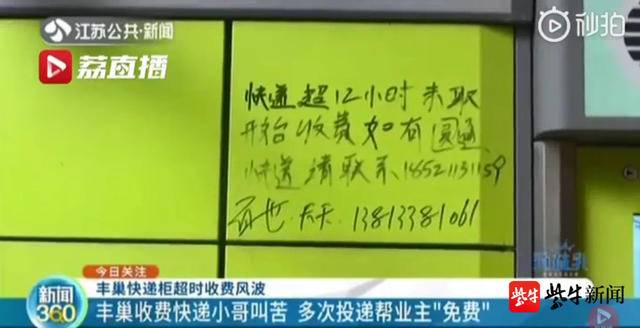 江苏公共·新闻
荔直播
秒拍
快递超12小时未取
开始收费如有圆通
快递请联系18521131159
百世.天天.13813381061
今日关注
丰巢快递柜超时收费风波
新闻
360
丰巢收费快递小哥叫苦 多次投递帮业主"免费"
紫牛
紫牛新闻